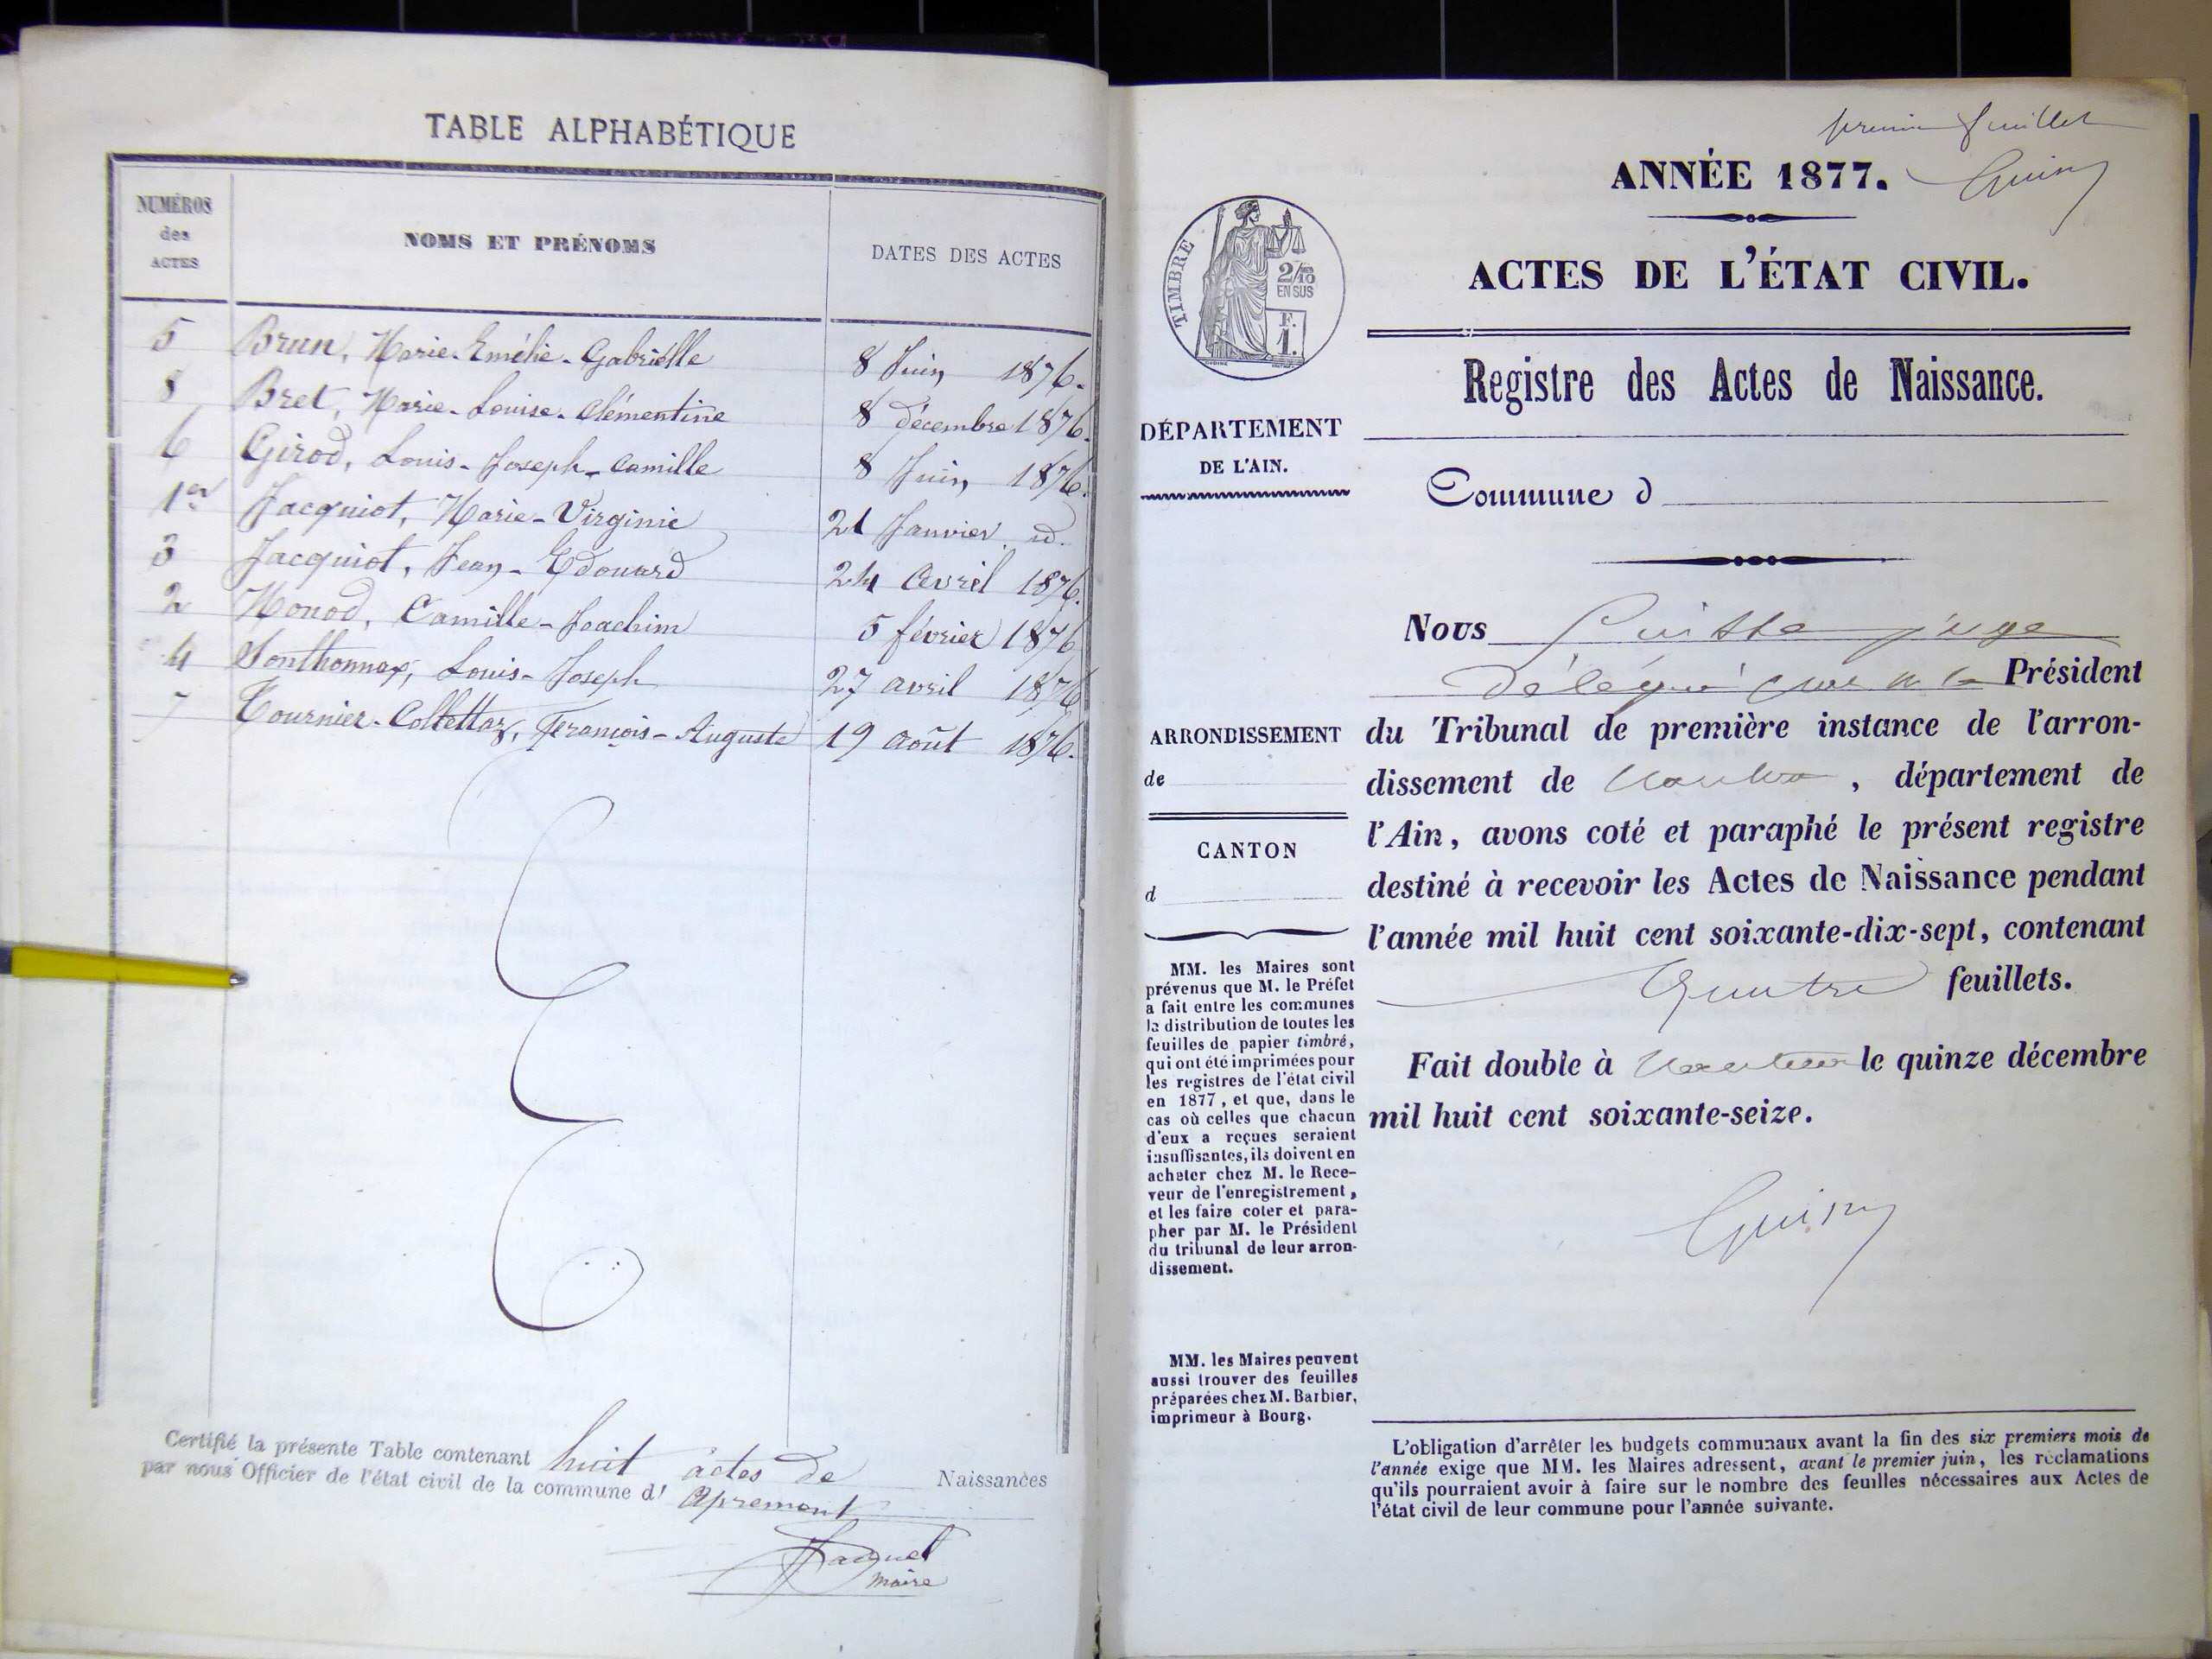 TABLE ALPHABÉTIQUE
NUMÉROS
des
ACTES
NOMS ET PRÉNOMS
DATES DES ACTES
5 Brun, Marie-Emélie-Gabriëlle 8 Juin 1876.
8 Bret, Marie-Louise-Clémentine 8 décembre 1876.
6 Girod, Louis-Joseph-Camille 8 Juin 1876.
1er Jacquiot, Marie-Virginie 21 Janvier id.
3 Jacquiot, Jean-Edouard 24 Avril 1876.
2 Monod, Camille-Joachim 5 février 1876
4 Sonthonnax, Louis-Joseph 27 avril 1876
7 Tournier-Collettaz, François-Auguste 19 août 1876.
Certifié la présente Table contenant huit actes de Naissances
par nous Officier de l'état civil de la commune d' Apremont
maire
premier feuillet
ANNÉE 1877.
TIMBRE
2/10
EN SUS
F.
1.
ACTES DE L'ÉTAT CIVIL.
Registre des Actes de Naissance.
DÉPARTEMENT
DE L'AIN.
Commune d
Nous juge
délégué par Président
ARRONDISSEMENT
de
CANTON
d
du Tribunal de première instance de l'arron-
dissement de Nantua, département de
l'Ain, avons coté et paraphé le présent registre
destiné à recevoir les Actes de Naissance pendant
l'année mil huit cent soixante-dix-sept, contenant
Quatre feuillets.
Fait double à Nantua le quinze décembre
mil huit cent soixante-seize.
MM. les Maires sont
prévenus que M. le Préfet
a fait entre les communes
la distribution de toutes les
feuilles de papier timbré,
qui ont été imprimées pour
les registres de l'état civil
en 1877, et que, dans le
cas où celles que chacun
d'eux a reçues seraient
insuffisantes, ils doivent en
acheter chez M. le Rece-
veur de l'enregistrement,
et les faire coter et para-
pher par M. le Président
du tribunal de leur arron-
dissement.
MM. les Maires peuvent
aussi trouver des feuilles
préparées chez M. Barbier,
imprimeur à Bourg.
L'obligation d'arrêter les budgets communaux avant la fin des six premiers mois de
l'année exige que MM. les Maires adressent, avant le premier juin, les réclamations
qu'ils pourraient avoir à faire sur le nombre des feuilles nécessaires aux Actes de
l'état civil de leur commune pour l'année suivante.